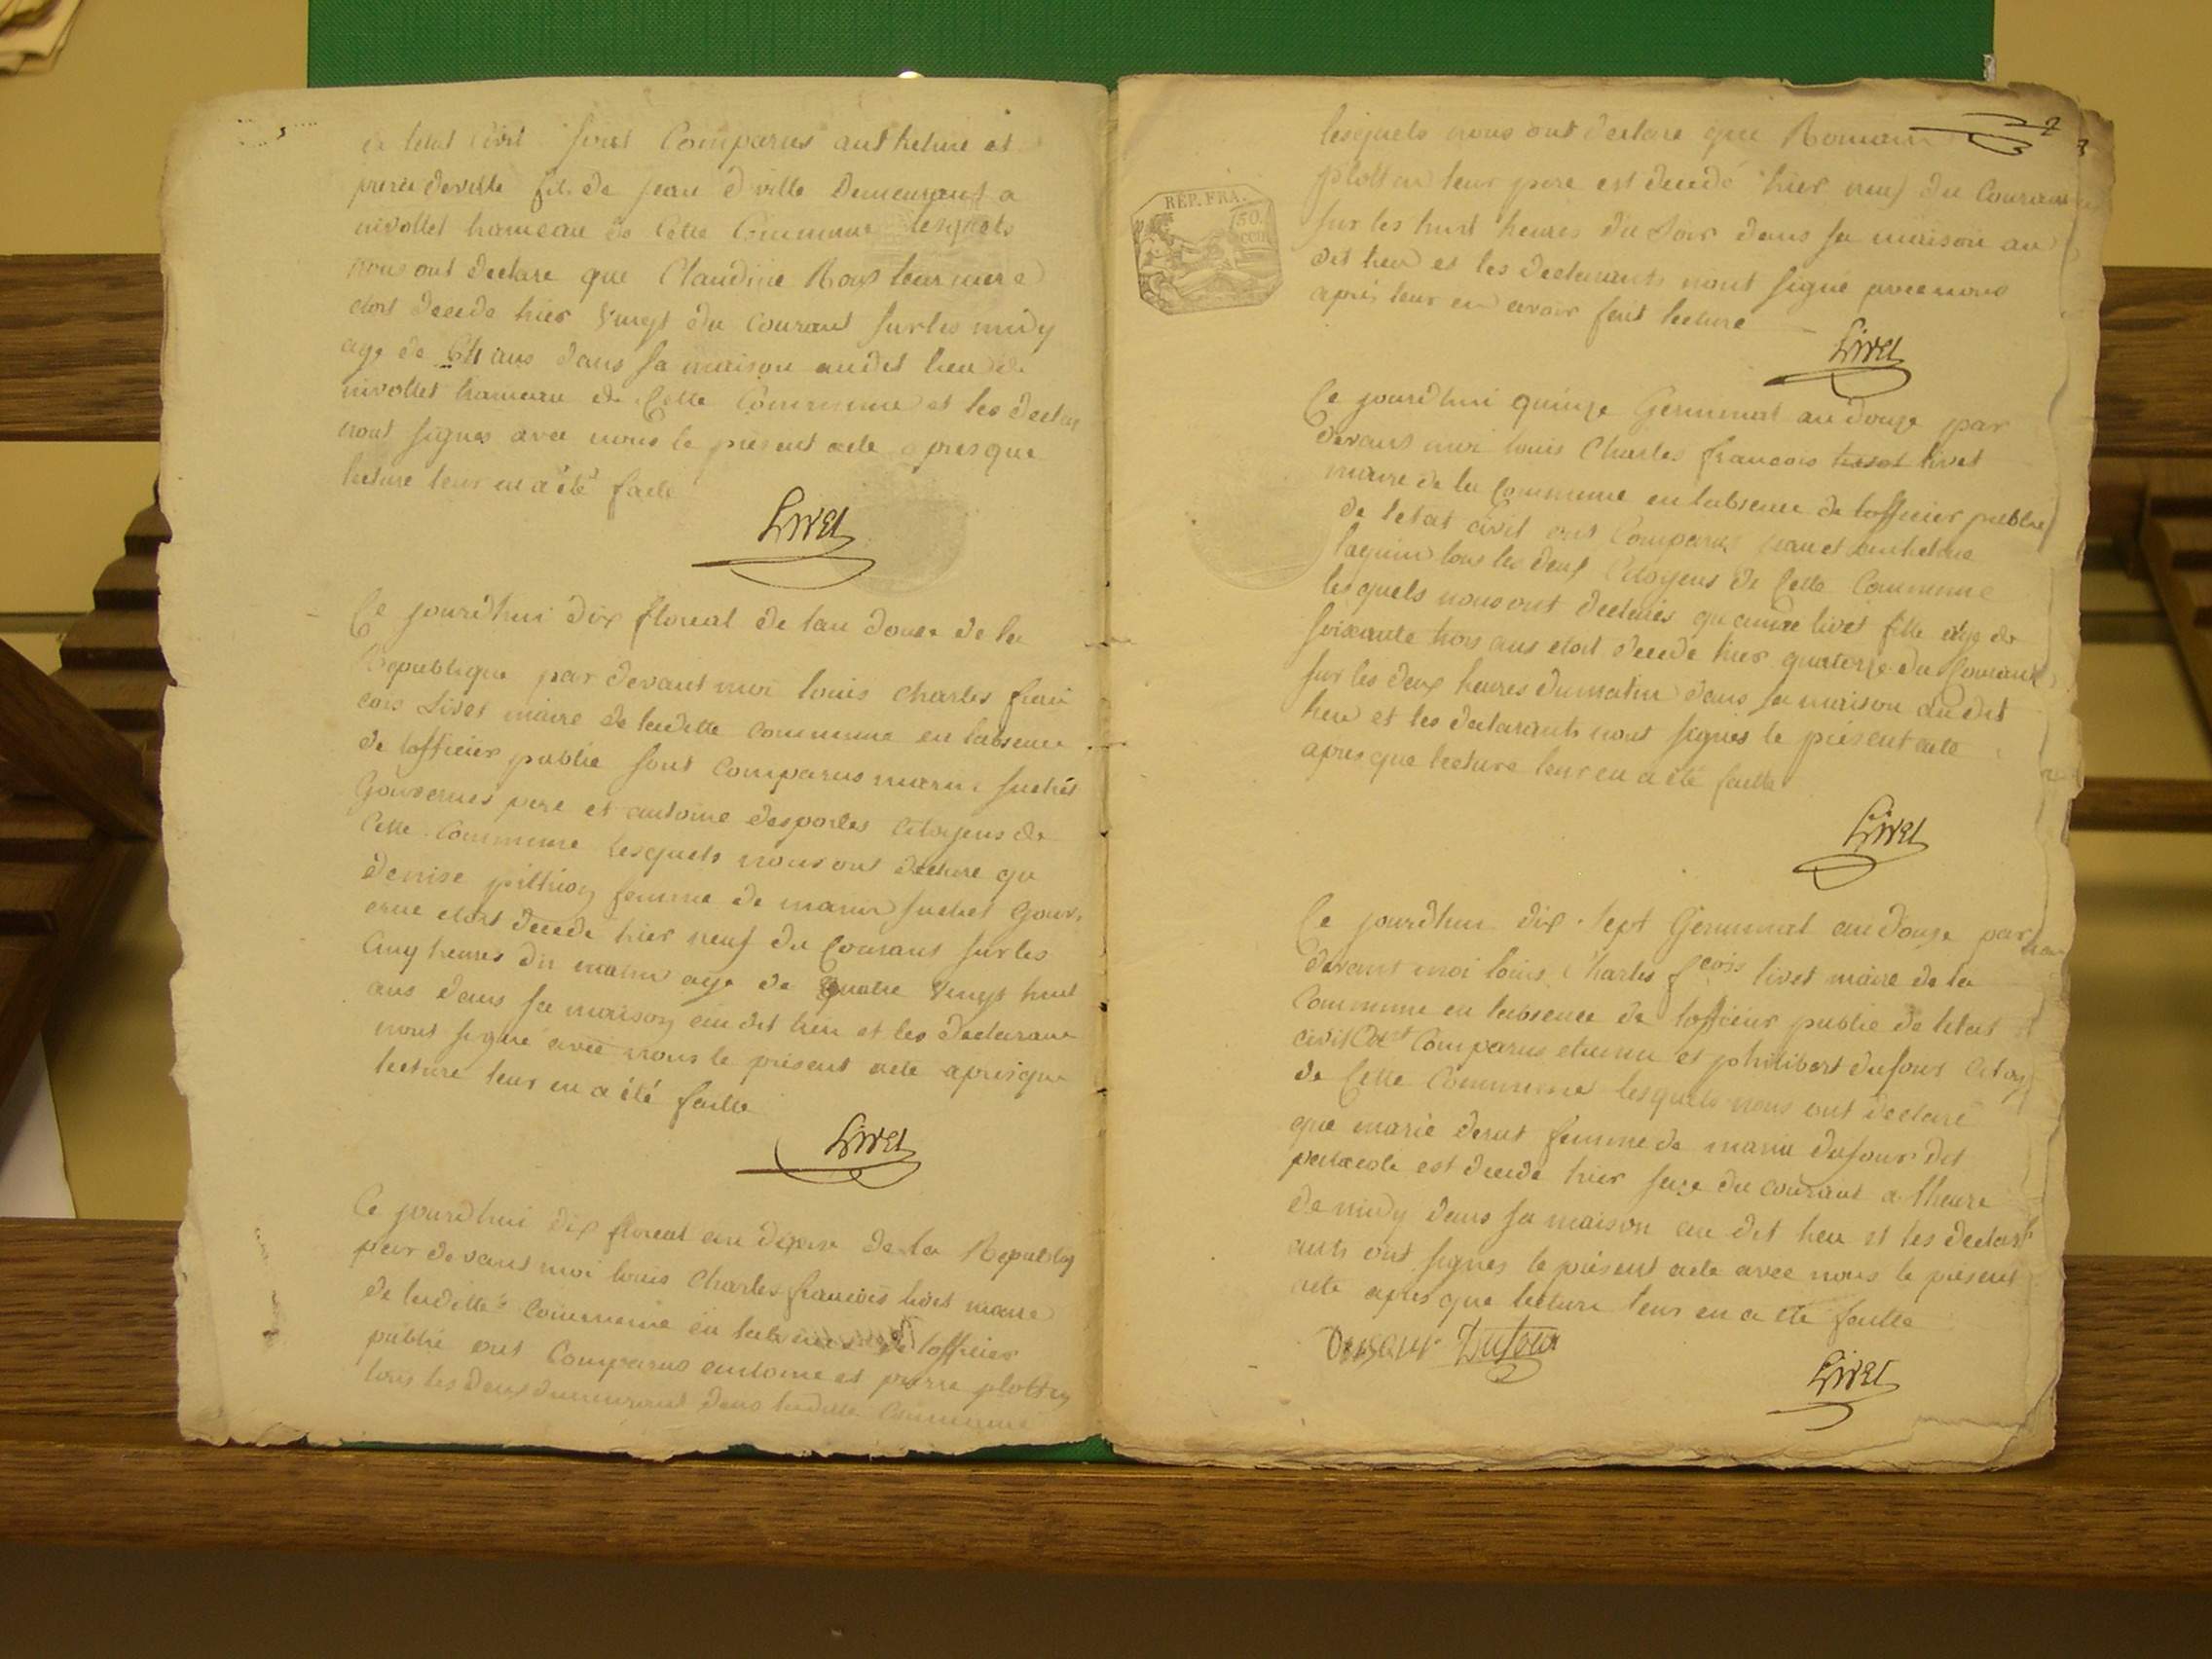 de letat Civil sont Comparus anthelme et
pierre deville fils de jean d ville Demeurant a
nivollet hameau de Cette Commune lesquels
nous ont declare que Claudine Roux leur mere
etoit decede hier vingt du Courant sur les midy
age de 61 ans dans sa maison audit lieu de
nivollet hameau de Cette Commune et les declar
nont signes avec nous le present acte apres que
lecture leur en a été faite
Livet
Ce jourd'hui dix floreal de lan douze de la
Republique par devant moi louis Charles fran
cois Livet maire de laditte Commune en labsence
de lofficier public sont Comparus marin suchet
Gouvernes pere et antoine desportes Citoyens de
Cette Commune lesquels nous ont declare qu
denise pithioy femme de marin suchet Gouv
erne etoit decede hier neuf du Courant sur les
Cinq heures du matin age de quatre vingt huit
ans dans sa maison au dit lieu et les declarant
nont signé avec nous le présent acte apres que
lecture leur en a été faitte
Livet
Ce jourd'hui dix floreal an douze de la Republiq
par devant moi louis Charles francois livet maire
de laditte Commune en labsence de lofficier
public ont Comparus antoine et pierre plotton
tous les deux demeurant dans laditte Commune
2
REP. FRA.
50.
CEN
lesquels nous ont declare que Romain
plotton leur pere est decedé hier neuf du Courant
sur les huit heures du Soir dans sa maison au
dit lieu et les declarants nont signe avec nous
apres leur en avoir fait lecture
Livet
Ce jourd'hui quinze Germinal an douze par
devant moi louis Charles francois livet
maire de la Commune en labsence de lofficier public
de letat civil ont Comparus jean et anthelme
laguin tous les deux Citoyens de Cette Commune
lesquels nous ont declarés qu livet fille age de
soixante trois ans etoit decede hier quatorze du Courant
sur les deux heures du matin dans sa maison au dit
lieu et les declarants nont signés le présent acte
apres que lecture leur en a été faitte
Livet
Ce jourd'hui dix sept Germinal an douze par
devant moi louis Charles fcois livet maire de la
Commune en labsence de lofficier public de letat
civil Ont Comparus etienne et philibert dufour Citoy
de Cette Commune lesquels nous ont declaré
que marie derut femme de marin dufour dit
est decede hier seze du courant a l'heure
de midy dans sa maison au dit lieu et les declar
ants ont signes le présent acte avec nous le present
acte apres que lecture leur en a été faitte
Dufour Dufour
Livet